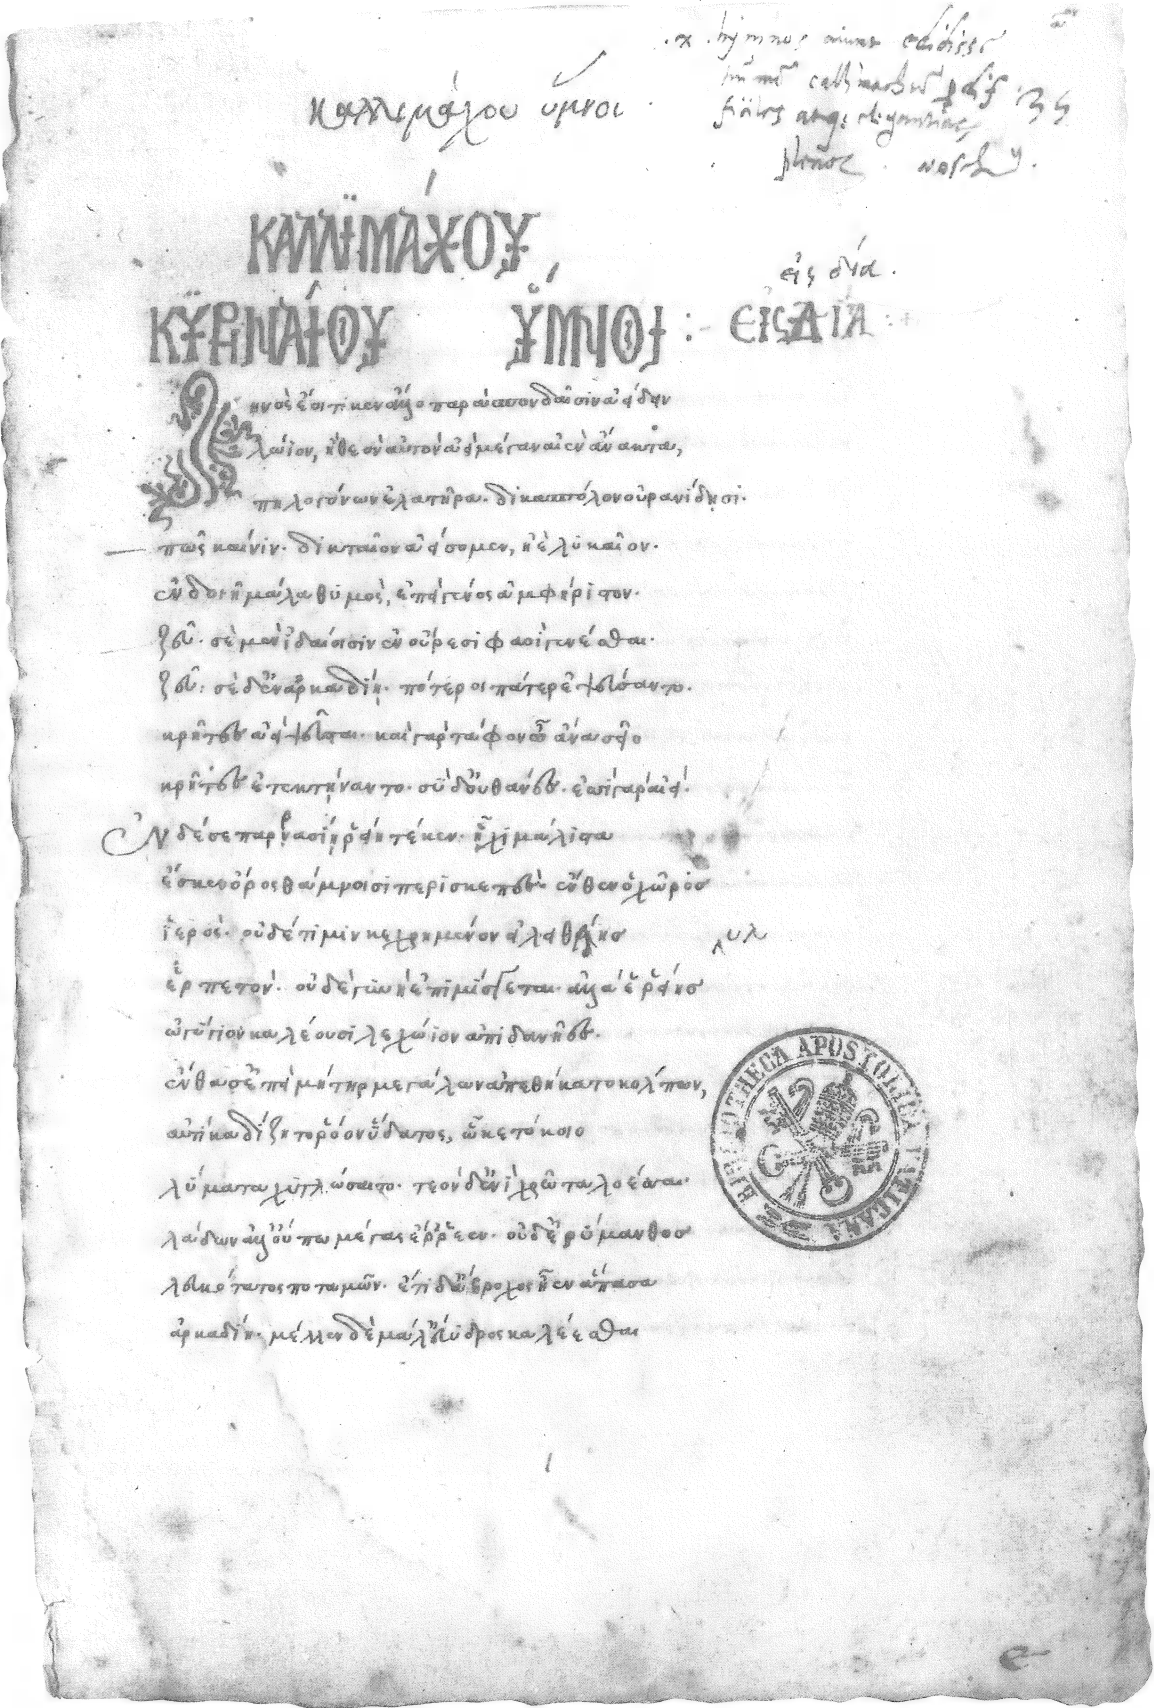 καλλιμάχου ὕμνοι
ΚΑΛΛΙΜΆΧΟΥ
εἰς δία.
ΚΥΡΗΝΑΊΟΥ ὝΜΝΟΙ :- ΕἸΣ ΔΊΑ :+
Ζηνὸς ἔοι τί κεν ἄλλο παρὰ σπονδαῖσιν ἀείδειν
λώϊον, ἢ θεὸν αὐτὸν ἀεὶ μέγαν αἰὲν ἄνακτα,
πηλογόνων ἐλατῆρα. δικασπόλον οὐρανίδῃσι.
πῶς καί νιν. δικταῖον ἀείσομεν, ἠὲ λυκαῖον.
ἐν δοιῇ μάλα θυμὸς, ἐπεὶ γένος ἀμφήριτον.
ζεῦ. σὲ μὲν ἰδαίοισιν ἐν οὔρεσί φασι γενέσθαι.
ζεῦ: σὲ δ' ἐν ἀρκαδίῃ. πότεροι πάτερ ἐψεύσαντο.
κρῆτες ἀεὶ ψεῦσται. καὶ γὰρ τάφον ὦ ἄνα σεῖο
κρῆτες ἐτεκτήναντο. σὺ δ' οὐ θάνες. ἐσσὶ γὰρ αἰεί.
ἐν δέ σε παρρασίῃ ῥείη τέκεν. ἧχι μάλιστα
ἔσκεν ὄρος θάμνοισι περισκεπὲς. ἔνθεν ὁ χῶρος
ἱερός. οὐδέ τί μιν κεχρημένον εἰλειθυίης
ἑρπετὸν. οὐδὲ γυνὴ ἐπιμίσγεται. ἀλλά ἑ ῥείης
ὠγύγιον καλέουσι λεχώϊον ἀπιδανῆες.
ἔνθα σ' ἐπεὶ μήτηρ μεγάλων ἀπεθήκατο κόλπων,
αὐτίκα δίζητο ῥόον ὕδατος, ᾧ κε τόκοιο
λύματα χυτλώσαιτο. τεὸν δ' ἐνὶ χρῶτα λοέσσαι.
λάδων ἀλλ' οὔπω μέγας ἔρρεεν. οὐδ' ἐρύμανθος
λευκότατος ποταμῶν. ἔτι δ' ἄβροχος ἦεν ἅπασα
ἀρκαδίη. μέλλεν δὲ μάλ' εὔυδρος καλέεσθαι
BIBLIOTHECA APOSTOLICA VATICANA